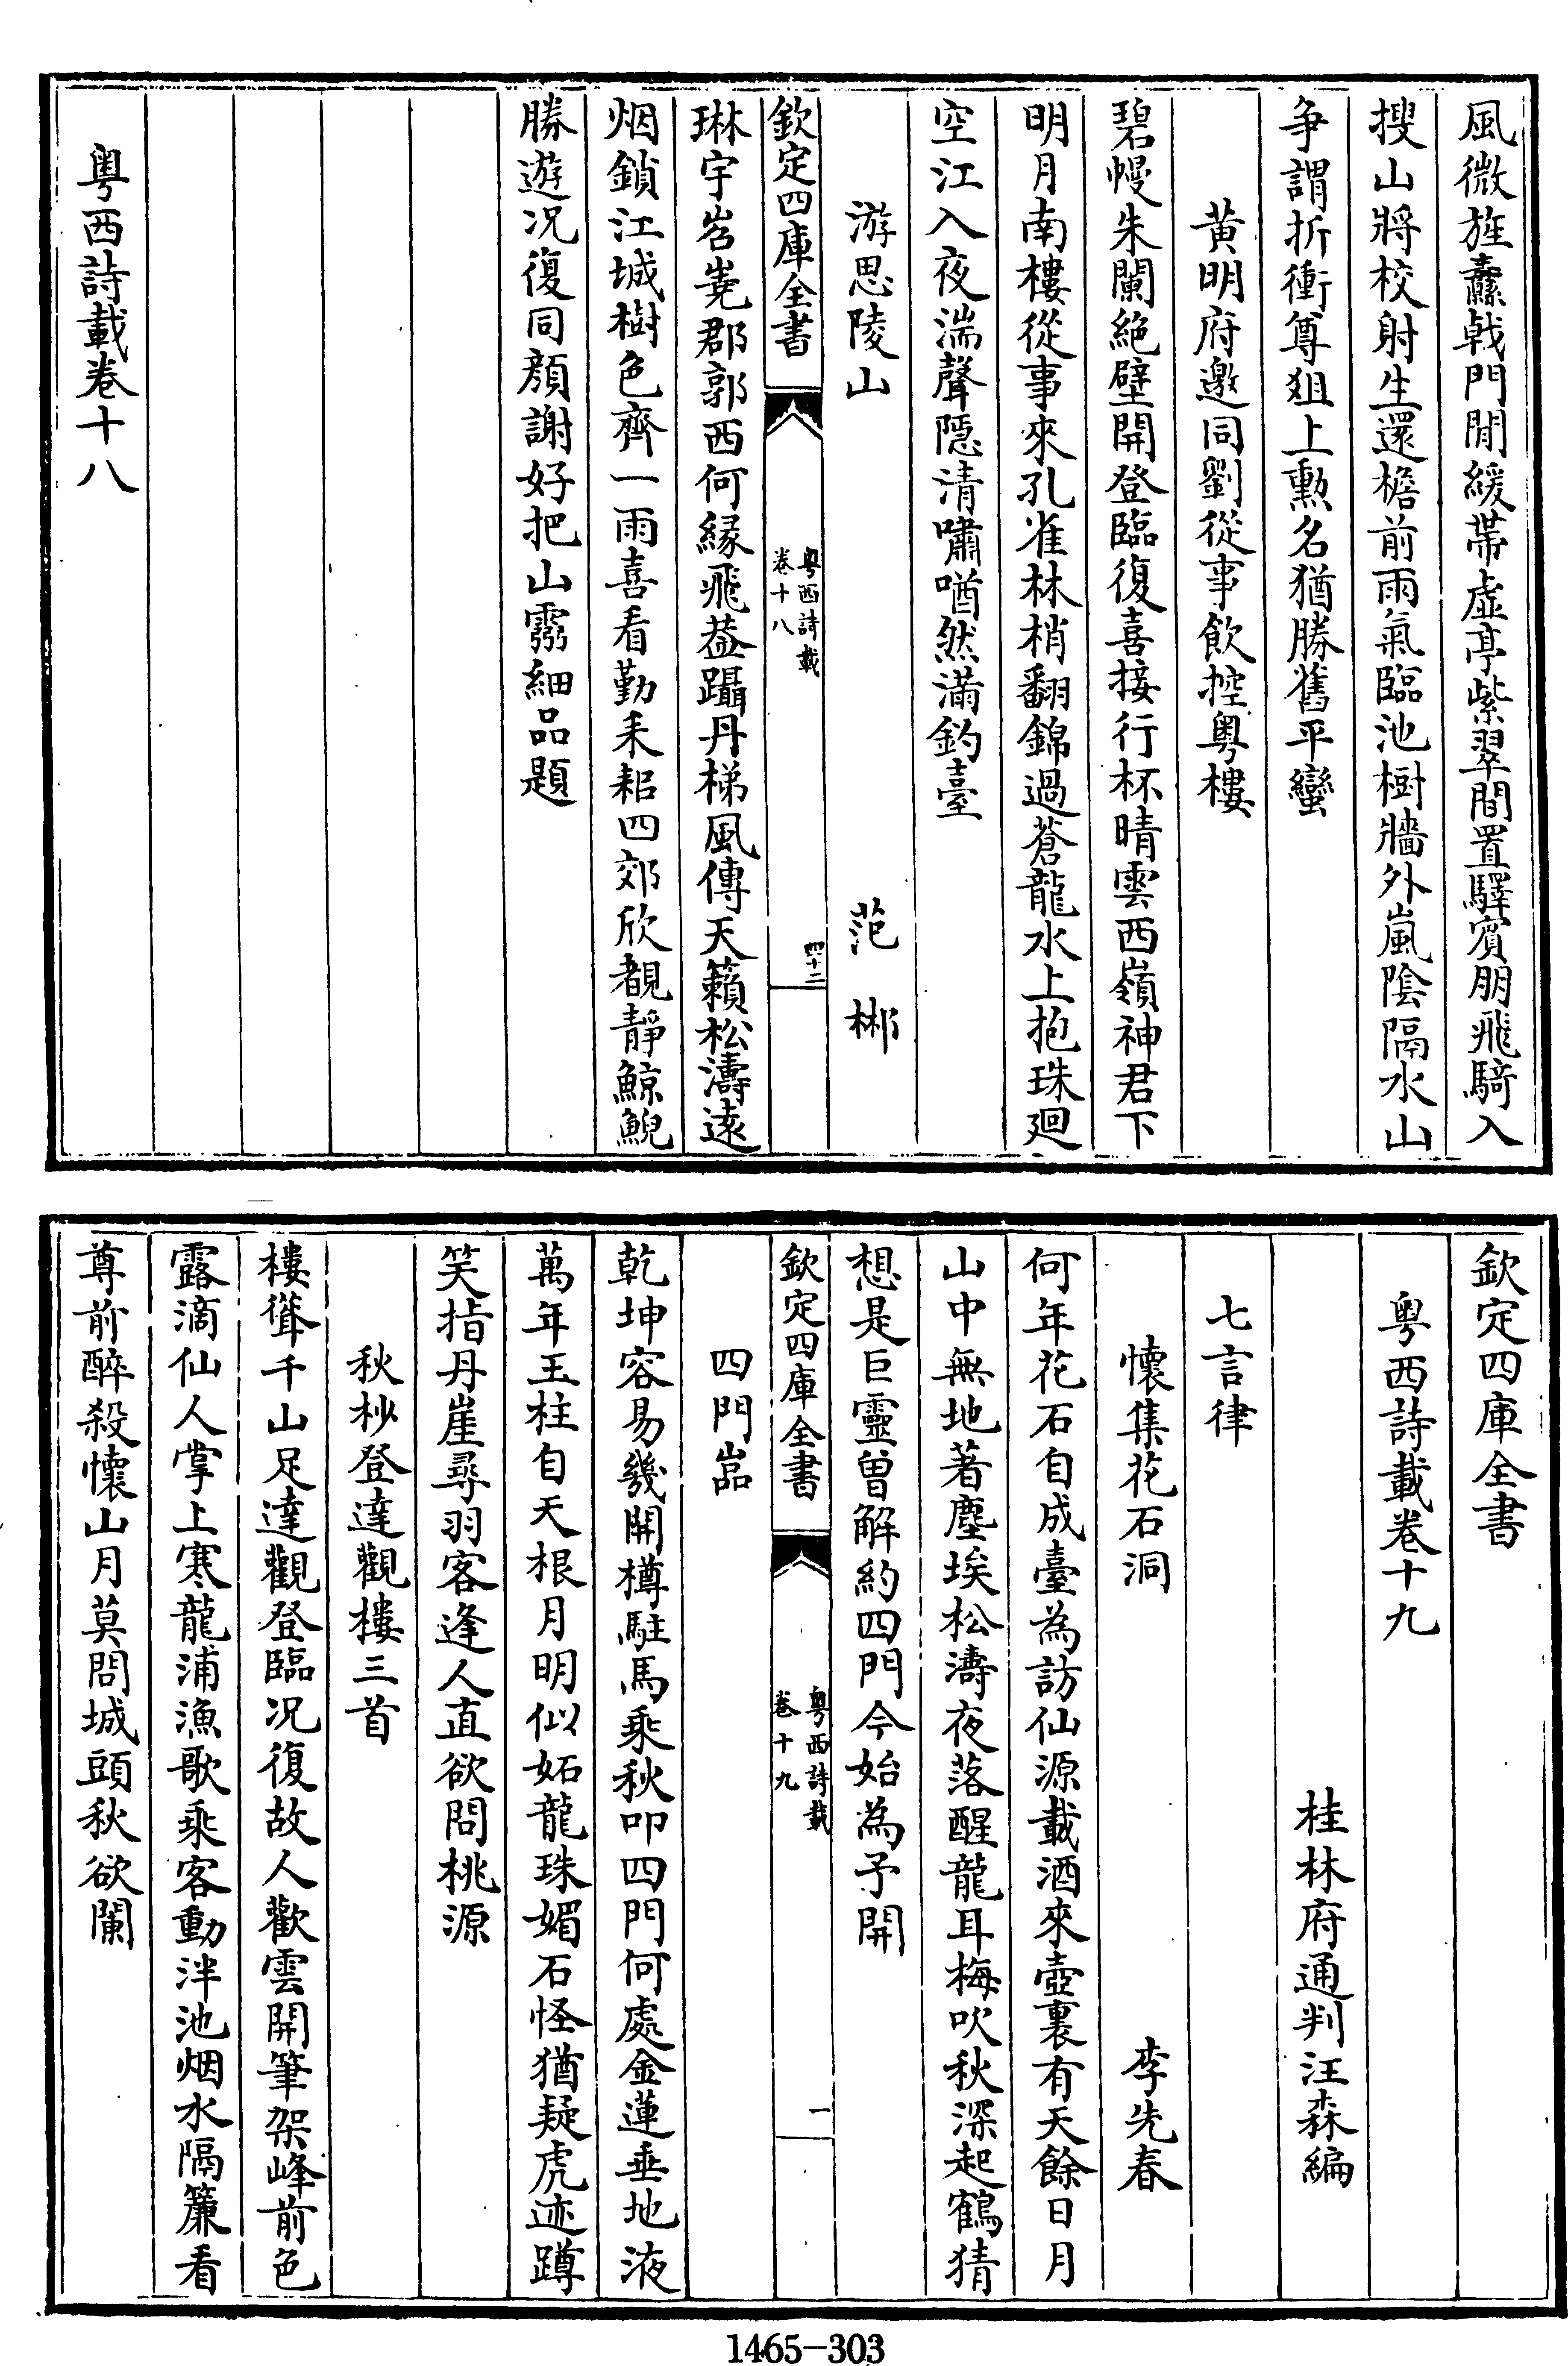 風微旌纛戟門閒緩帶虛亭紫翠間置驛賓朋飛騎入
搜山將校射生還檐前雨氣臨池樹牆外嵐陰隔水山
争謂折衝尊俎上勲名猶勝舊平蠻
黄明府邀同劉從事飲控粤樓
碧幔朱闌絶壁開登臨復喜接行杯晴雲西嶺神君下
明月南樓從事來孔雀林梢翻錦過蒼龍水上抱珠廻
空江入夜湍聲隱清嘯啾然滿釣臺
游思陵山 范彬
欽定四庫全書 粤西詩載 卷十八 四十二
琳宇岧嶤郡郭西何緣飛葢躡丹梯風傳天籟松濤逺
烟鎖江城樹色齊一雨喜看勤耒耜四郊欣覩靜鯨鯢
勝遊况復同顔謝好把山靈細品題
粤西詩載卷十八
欽定四庫全書
粤西詩載卷十九
桂林府通判汪森編
七言律
懷集花石洞 李先春
何年花石自成臺為訪仙源載酒來壺裏有天餘日月
山中無地著塵埃松濤夜落醒龍耳梅吹秋深起鶴猜
想是巨靈曾解約四門今始為予開
欽定四庫全書 粤西詩載 卷十九 一
四門嵓
乾坤容易幾開樽駐馬乘秋叩四門何處金蓮垂地液
萬年玉柱自天根月明似妬龍珠媚石怪猶疑虎迹蹲
笑指丹崖尋羽客逢人直欲問桃源
秋杪登達觀樓三首
樓聳千山足達觀登臨况復故人歡雲開筆架峰前色
露滴仙人掌上寒龍浦漁歌乘客動泮池烟水隔簾看
尊前醉殺懷山月莫問城頭秋欲闌
1465-303